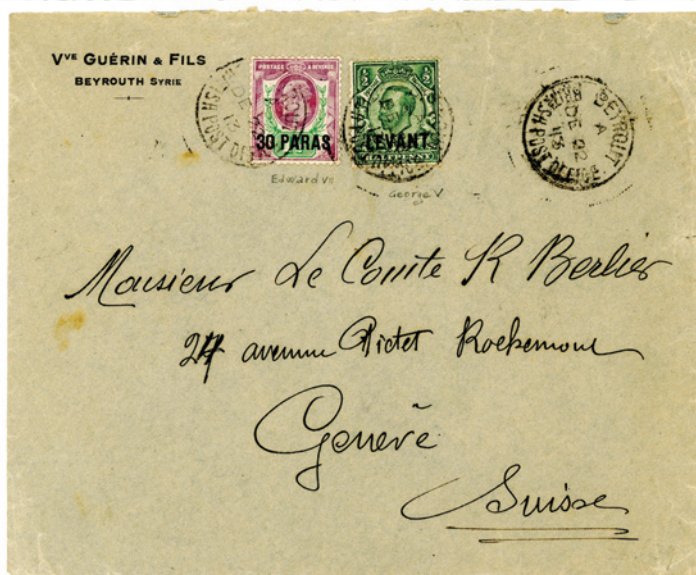 Vve GUÉRIN & FILS
BEYROUTH SYRIE
POSTAGE & REVENUE
30 PARAS
½ ½
LEVANT
BRITISH POST OFFICE
DE
13
BEYROUT
A
DE 22
13
BRITISH POST OFFICE
Edward VII
George V
Monsieur Le Comte R Berlier
24 avenue Pictet Rochemont
Genève
Suisse